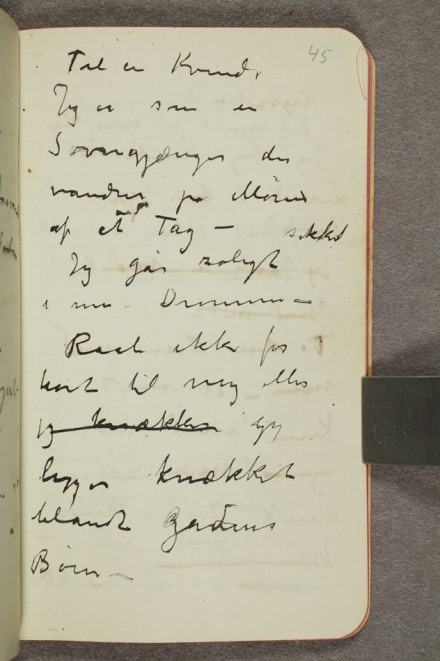 45
Til en Kvinde
Jeg er som en
Søvngjænger der
vandrer på Mønet
af et Tag – sikkert
Jeg går roligt
i mine Drømme –
Raab ikke for
høit til meg eller
jeg knækkes jeg
ligger knækket
blandt Gadens
Børn –